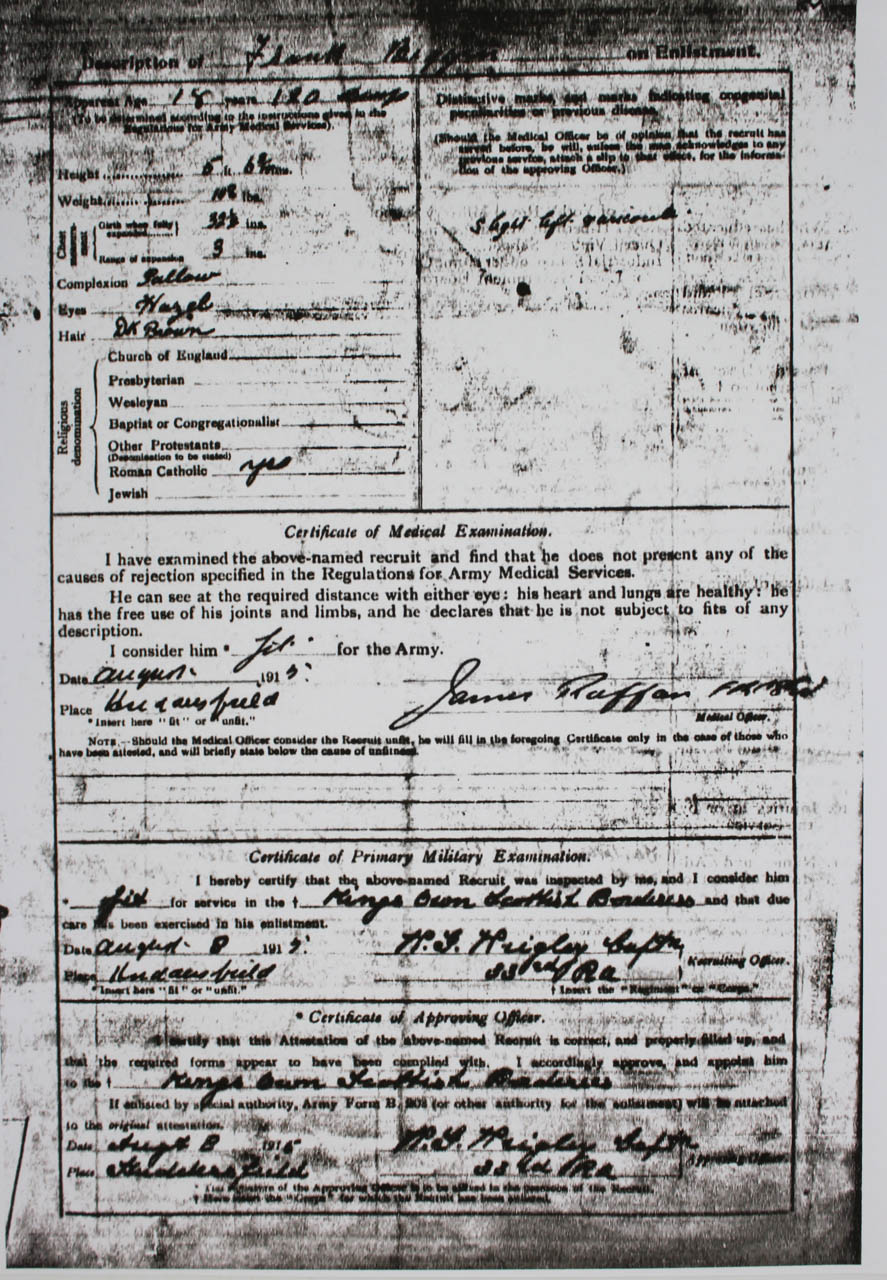 Description of Frank on Enlistment.
Apparent Age 18 years 180 days
(To be determined according to the instructions given in the
Regulations for Army Medical Services).
Height 5 ft. 6 ins.
Weight 108 lbs.
Chest measurement
Girth when fully
expanded 32½ ins.
Range of expansion 3 ins.
Complexion Sallow
Eyes Hazel
Hair Dk Brown
Religious denomination
Church of England
Presbyterian
Wesleyan
Baptist or Congregationalist
Other Protestants
(Denomination to be stated)
Roman Catholic yes
Jewish
Distinctive marks, and marks indicating congenital
peculiarities or previous disease.
(Should the Medical Officer be of opinion that the recruit has
served before, he will, unless the man acknowledges to any
previous service, attach a slip to that effect, for the informa-
tion of the approving Officer.)
Slight left varicocele
Certificate of Medical Examination.
I have examined the above-named recruit and find that he does not present any of the
causes of rejection specified in the Regulations for Army Medical Services.
He can see at the required distance with either eye: his heart and lungs are healthy: he
has the free use of his joints and limbs, and he declares that he is not subject to fits of any
description.
I consider him * fit for the Army.
Date August 1915
Place Huddersfield
James Raffan
Medical Officer.
* Insert here "fit" or "unfit."
NOTE.—Should the Medical Officer consider the Recruit unfit, he will fill in the foregoing Certificate only in the case of those who
have been attested, and will briefly state below the cause of unfitness.
Certificate of Primary Military Examination.
I hereby certify that the above-named Recruit was inspected by me, and I consider him
* fit for service in the † Kings Own Scottish Borderers and that due
care has been exercised in his enlistment.
Date August 8 1915 Captn
Place Huddersfield 33rd Recruiting Officer.
* Insert here "fit" or "unfit." † Insert the "Regiment" or "Corps."
* Certificate of Approving Officer.
I certify that this Attestation of the above-named Recruit is correct, and properly filled up, and
that the required forms appear to have been complied with. I accordingly approve, and appoint him
to the † Kings Own Scottish Borderers
If enlisted by special authority, Army Form B. 203 (or other authority for the enlistment) will be attached
to the original attestation.
Date Augt 8 1915 Captn
Place Huddersfield 33rd Approving Officer.
* The signature of the Approving Officer is to be affixed in the presence of the Recruit.
† Here insert the "Corps" for which the Recruit has been enlisted.